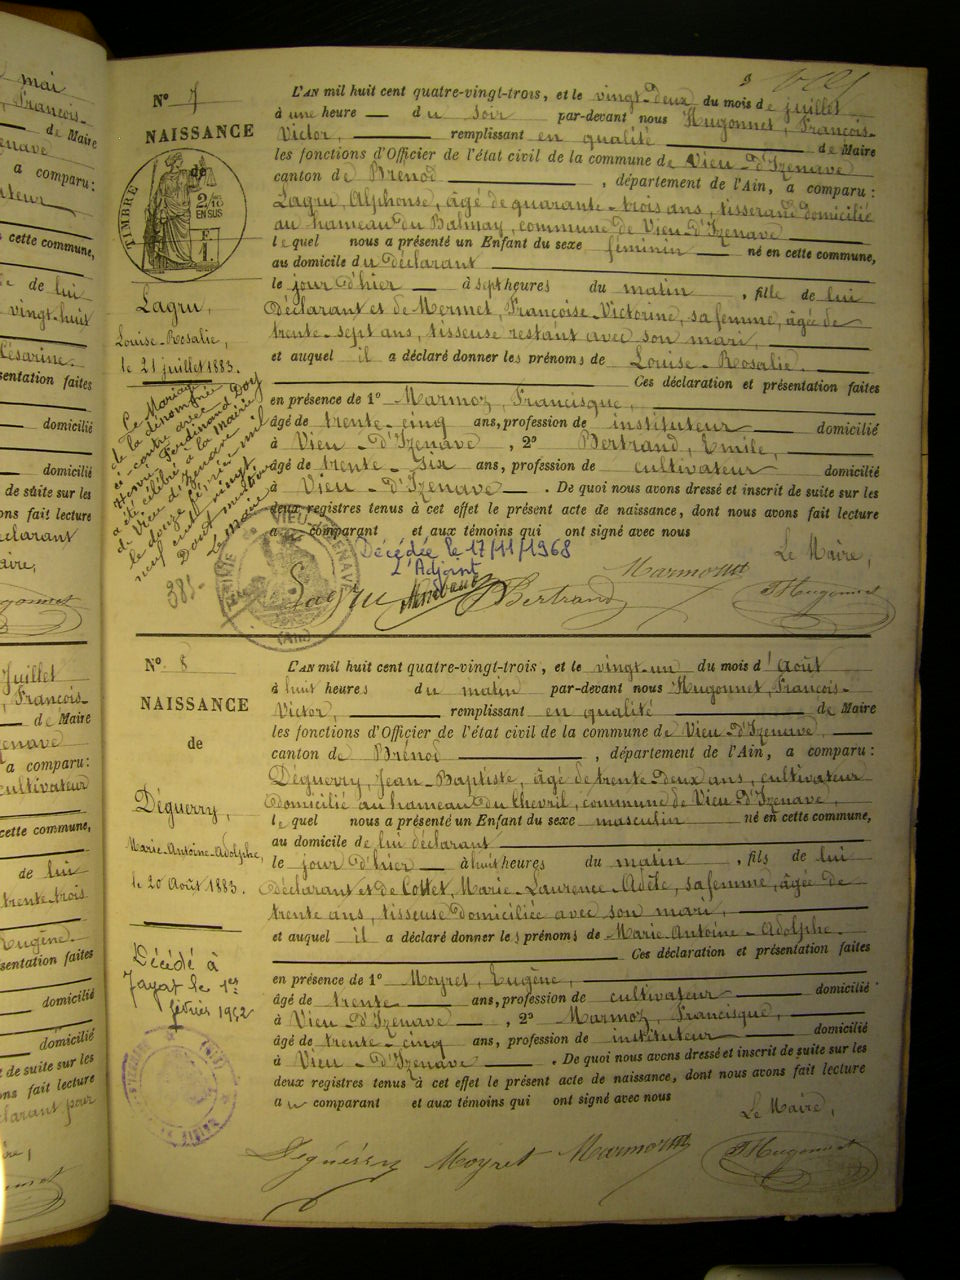 mai
François-
de Maire
a comparu :
cette commune,
de lui
vingt-huit
Césarine.
présentation faites
domicilié
domicilié
de suite sur les
ons fait lecture
déclarant
aire,
Juillet
François-
de Maire
a comparu :
cultivateur
cette commune,
de lui
trente-trois
Eugène.
sentation faites
domicilié
domicilié
de suite sur les
ns fait lecture
clarant pour
N° 7
NAISSANCE
de
TIMBRE
2/10
EN SUS
F.
1.
Lagru,
Louise-Rosalie,
le 21 juillet 1883.
Le Mariage
de la dénommée
ci-contre avec
Henri Ferdinand Doy
a été célébré à la Mairie
de Vieu d'Izenave
le douze février mil
neuf cent vingt.
Dont mention
Le Maire
L'AN mil huit cent quatre-vingt-trois, et le vingt-deux du mois de juillet
à une heure du soir par-devant nous Hugonnet, François-
Victor, remplissant en qualité de Maire
les fonctions d'Officier de l'état civil de la commune de Vieu-D'Izenave
canton de Brénod, département de l'Ain, a comparu :
Lagru, Alphonse, âgé de quarante-trois ans, tisserand domicilié
au hameau du Balmay, commune de Vieu-D'Izenave
lequel nous a présenté un Enfant du sexe féminin né en cette commune,
au domicile du Déclarant
le jour d'hier à sept heures du matin, fille de lui
Déclarant et de Mermet, Françoise-Victorine, sa femme, âgée de
trente-sept ans, tisseuse restant avec son mari,
et auquel il a déclaré donner les prénoms de Louise-Rosalie.
Ces déclaration et présentation faites
en présence de 1° Marmoz, Francisque,
âgé de trente-cinq ans, profession de instituteur domicilié
à Vieu-D'Izenave, 2° Bertrand, Emile,
âgé de trente-six ans, profession de cultivateur domicilié
à Vieu-D'Izenave. De quoi nous avons dressé et inscrit de suite sur les
deux registres tenus à cet effet le présent acte de naissance, dont nous avons fait lecture
au comparant et aux témoins qui ont signé avec nous
Décédée le 17/11/1968
L'Adjoint
Le Maire,
Lagru Bertrand Marmoz Hugonnet
N° 8
NAISSANCE
de
Déguerry,
Marie-Antoine-Adolphe,
le 20 Août 1883.
Décédé à
Jayat le 1er
février 1952
L'AN mil huit cent quatre-vingt-trois, et le vingt-un du mois d'Août
à huit heures du matin par-devant nous Hugonnet, François-
Victor, remplissant en qualité de Maire
les fonctions d'Officier de l'état civil de la commune de Vieu-D'Izenave,
canton de Brénod, département de l'Ain, a comparu :
Déguerry, Jean-Baptiste, âgé de trente-deux ans, cultivateur
domicilié au hameau du Chevril, commune de Vieu-D'Izenave,
lequel nous a présenté un Enfant du sexe masculin né en cette commune,
au domicile de lui déclarant
le jour d'hier à huit heures du matin, fils de lui
déclarant et de Cottet, Marie-Laurence-Adèle, sa femme, âgée de
trente ans, tisseuse domiciliée avec son mari,
et auquel il a déclaré donner les prénoms de Marie-Antoine-Adolphe.
Ces déclaration et présentation faites
en présence de 1° Moyret, Eugène,
âgé de trente ans, profession de cultivateur domicilié
à Vieu-D'Izenave, 2° Marmoz, Francisque,
âgé de trente-cinq ans, profession de instituteur domicilié
à Vieu-D'Izenave. De quoi nous avons dressé et inscrit de suite sur les
deux registres tenus à cet effet le présent acte de naissance, dont nous avons fait lecture
au comparant et aux témoins qui ont signé avec nous
Le Maire,
Moyret Marmoz Hugonnet